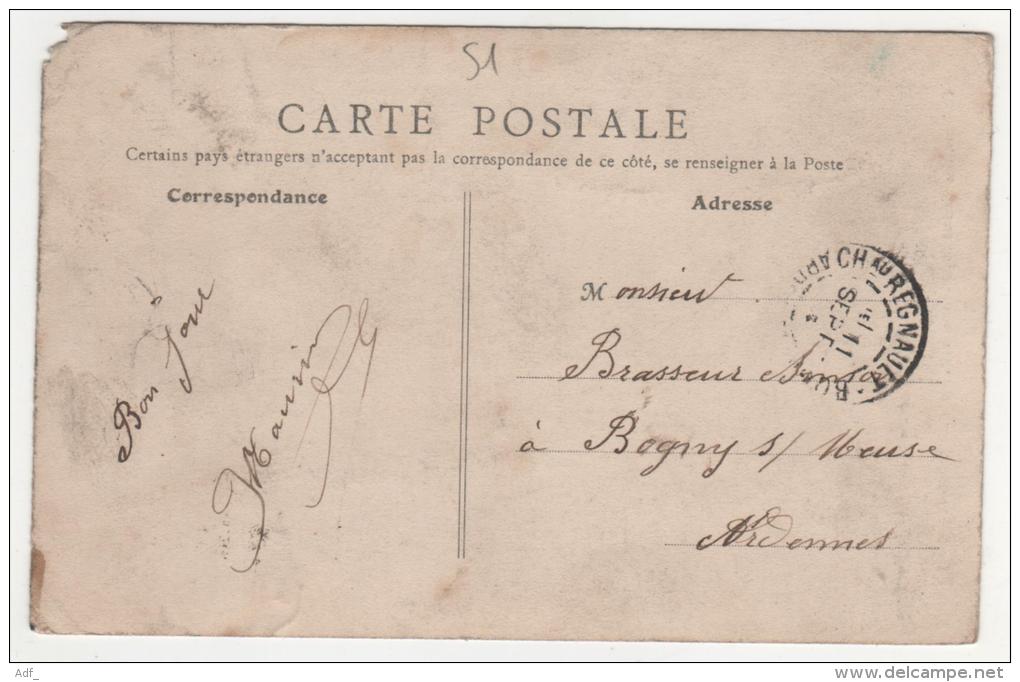 51
CARTE POSTALE
Certains pays étrangers n'acceptant pas la correspondance de ce côté, se renseigner à la Poste
Correspondance
Adresse
Bon Jour
Monsieur
Brasseur
à Bogny s/ Meuse
Ardennes
REGNAULT
SEPT
11
Adf_
www.delcampe.net